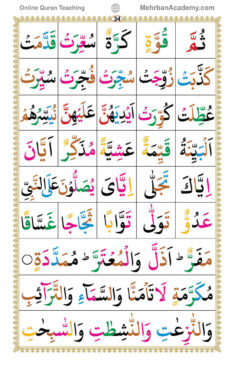 Online Quran Teaching MehrbanAcademy.com
34
ثُمَّ قُوَّةٍ كَرَّةٌ سُعِّرَتْ قَدَّمَتْ
كَذَّبَتْ زُوِّجَتْ سُجِّرَتْ فُجِّرَتْ سُيِّرَتْ
عُطِّلَتْ كُوِّرَتْ اَيْدِيَهُنَّ عَلَيْهِنَّ نُيَسِّرُهُمْ
اَلْبَيِّنَةُ قَيِّمَةٌ عَشِيَّةً مُذَكِّرٌ اَيَّانَ
اِيَّاكَ تَجَلّٰى اِيَّايَ يُصَلُّوْنَ عَلَى النَّبِيِّ
عَدُوٌّ تَوَلّٰى تَوَّابًا ثَجَّاجًا غَسَّاقًا
مَفَرٌّ ط اَذَلَّ وَالْمُعْتَرَّ ط مُمَدَّدَةٍ ○
مُكَرَّمَةٍ لَا تَاْمَنَّا وَالسَّمَآءِ وَالتَّرَآئِبِ
وَالنّٰزِعٰتِ وَالنّٰشِطٰتِ وَالسّٰبِحٰتِ